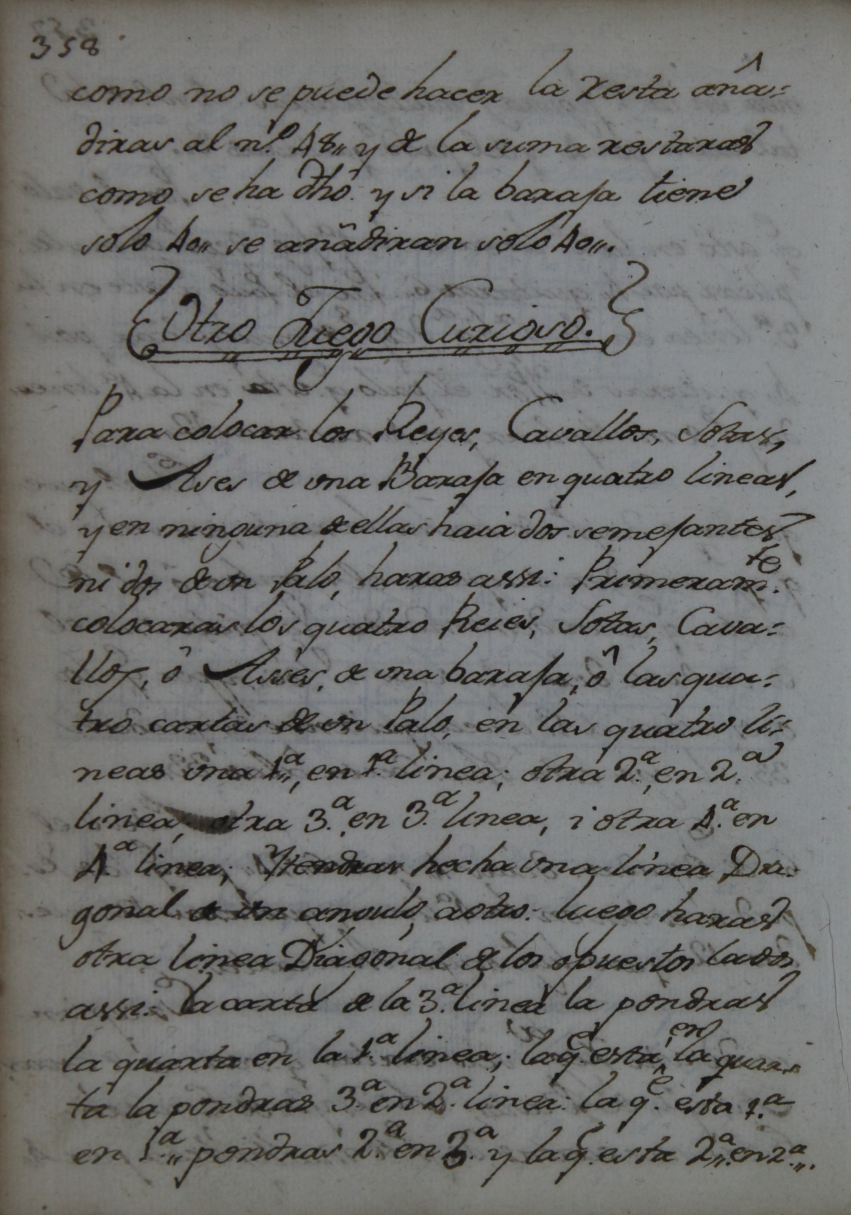 358
como no se puede hacer la resta aña-
diras al n.º 48,, y de la suma restaras
como se ha dhô. y si la baraja tiene
solo 40,, se añadiran solo 40,,.
Otro Juego Curioso.
Para colocar los Reyes, Cavallos, Sotas,
y Ases de una Baraja en quatro lineas,
y en ninguna de ellas haia dos semejantes
ni dos de un Palo, haras assi: Primeram.te
colocaras los quatro Reies, Sotas, Cava-
llos, ô Asses, de una baraja, ô las qua-
tro cartas de un Palo, en las quatro li-
neas una 1.ª,, en 1.ª linea; otra 2.ª, en 2.ª
linea, otra 3.ª, en 3.ª linea, i otra 4.ª en
4.ª linea; y tendras hecha una linea Dia-
gonal de un angulo, a otro: luego haras
otra linea Diagonal de los opuestos lados
assi: la carta de la 3.ª linea la pondras
la quarta en la 1.ª linea; la q.e está en la quar-
ta la pondras 3.ª en 2.ª linea: la q.e esta 1.ª
en 1.ª,, pondras 2.ª en 3.ª y la q.e esta 2.ª,, en 2.ª,,.